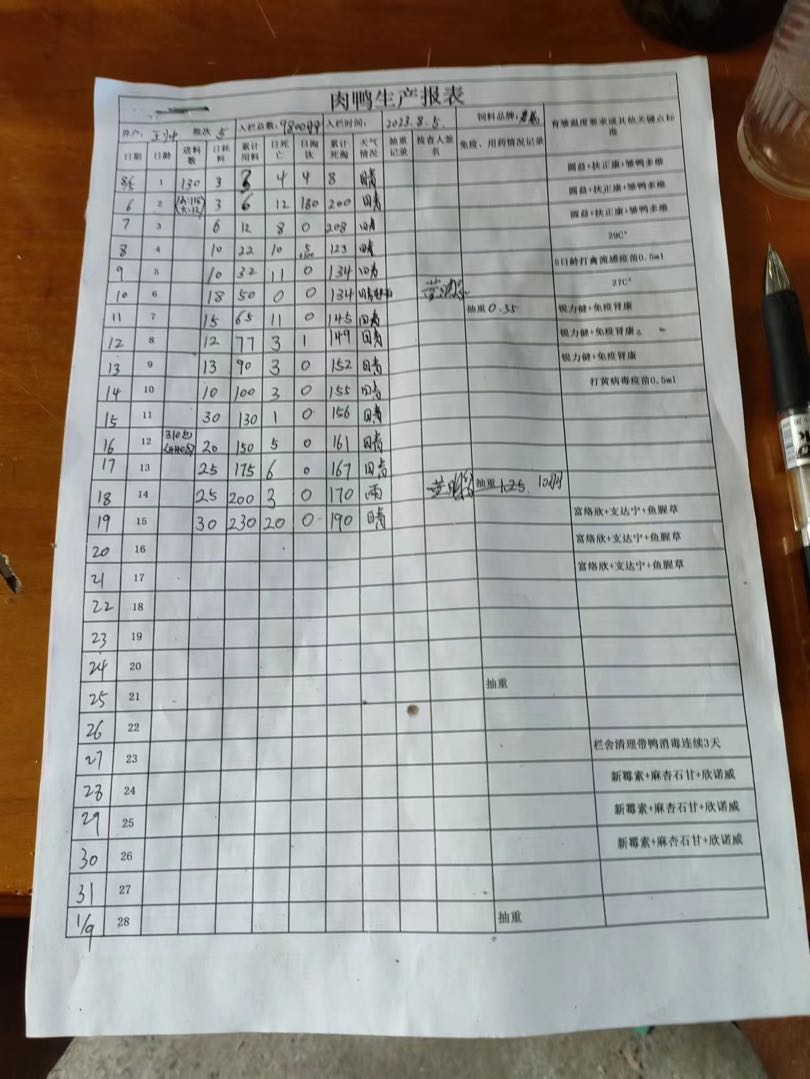 肉鸭生产报表
养户: 批次 5 入栏总数: 9800 入栏时间: 2023.8.5. 饲料品牌: 育雏温度要求或其他关键点标准
日期 日龄 进料数 日耗料 累计用料 日死亡 日淘汰 累计死淘 天气情况 抽重记录 检查人签名 免疫、用药情况记录
8/5 1 130 3 3 4 4 8 晴 圆益+扶正康+雏鸭多维
6 2 3 6 12 180 200 晴 圆益+扶正康+雏鸭多维
7 3 6 12 8 0 208 晴 圆益+扶正康+雏鸭多维
8 4 10 22 10 5 123 晴 29C°
9 5 10 32 11 0 134 晴 5日龄打禽流感疫苗0.5ml
10 6 18 50 0 0 134 晴 27C°
11 7 15 65 11 0 145 晴 抽重0.35 锐力健+免疫肾康
12 8 12 77 3 1 149 晴 锐力健+免疫肾康
13 9 13 90 3 0 152 晴 锐力健+免疫肾康
14 10 10 100 3 0 155 晴 打黄病毒疫苗0.5ml
15 11 30 130 1 0 156 晴
16 12 310包 20 150 5 0 161 晴
17 13 25 175 6 0 167 晴
18 14 25 200 3 0 170 雨 抽重 1.25.
19 15 30 230 20 0 190 晴 富络欣+支达宁+鱼腥草
20 16 富络欣+支达宁+鱼腥草
21 17 富络欣+支达宁+鱼腥草
22 18
23 19
24 20
25 21 抽重
26 22
27 23 栏舍清理带鸭消毒连续3天
28 24 新霉素+麻杏石甘+欣诺威
29 25 新霉素+麻杏石甘+欣诺威
30 26 新霉素+麻杏石甘+欣诺威
31 27
1/9 28 抽重